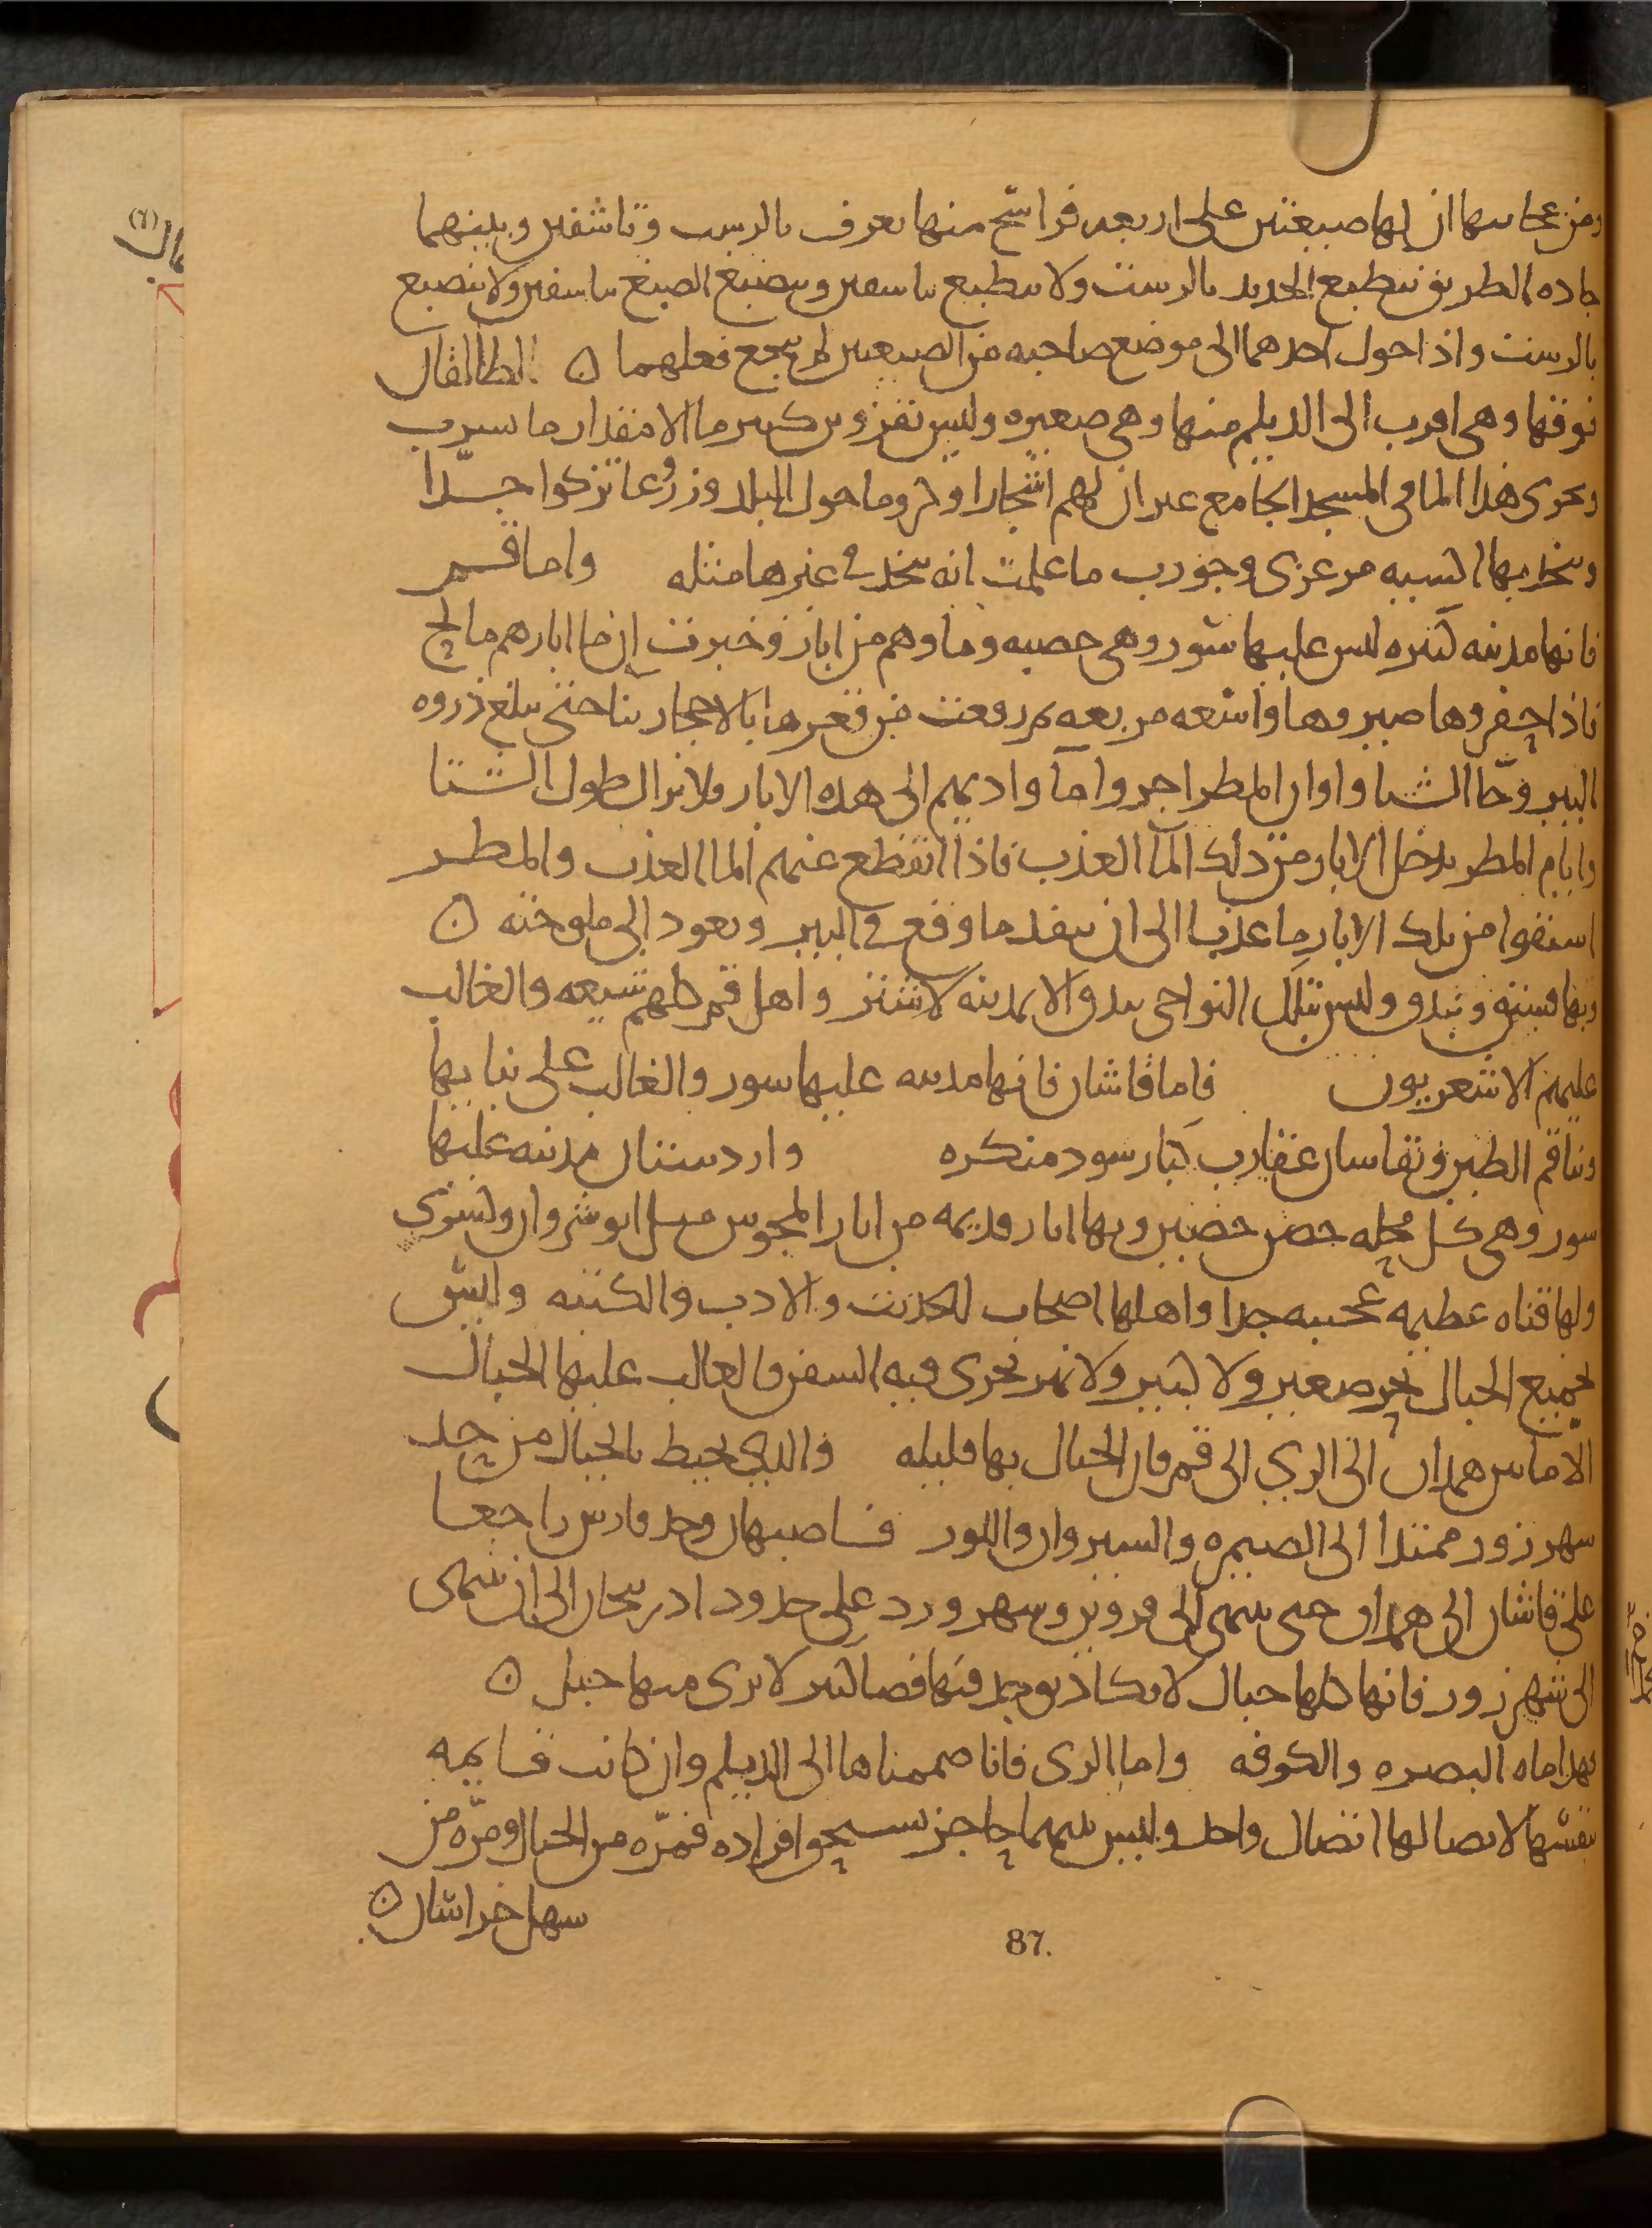 ومن عجائبها ان لها ضيعتين على اربعه فراسخ منها تعرف بالدست وتاشقين وبينهما
جاده الطريق ينطبع الحديد بالدست ولا ينطبع بتاسقين وينصبغ الصبغ بتاسقين ولا ينصبغ
بالدست واذا حول احدهما الى موضع صاحبه من الضيعتين لم ينجع فعلهما ن الطالقان
فوقها وهى اقرب الى الديلم منها وهى صغيره وليس بقزوين كبير ما الا مقدار ما يشرب
ويجرى هذا الما فى المسجد الجامع غير ان لهم اشجارا وكروما حول البلد وزروعا تزكوا جدّا
ويتخذ بها اكسيه مرعزى وجورب ما علمت انه يتخذ فى غيرها مثله واما قم
فانها مدينه كبيره ليس عليها سور وهى خصبه وماوهم من ابار وخبرت ان ما ابارهم مالح
فاذا حفروها صيروها واسعه مربعه ثم رفعت من قعرها بالاحجار بنا حتى يبلغ ذروه
البير وجا الشتا واوان المطر اجروا مآ واديهم الى هذه الابار ولا يزال طول الشتا
وايام المطر يدخل الابار من ذلك المآ العذب فاذا انقطع عنهم الما العذب والمطر
استقوا من تلك الابار ما عذبا الى ان ينفد ما وقع فى البير ويعود الى ملوحته ن
وبها فستق وبندق وليس بتلك النواحى بندق الا بمدينه لاشتر واهل قم كلهم شيعه والغالب
عليهم الاشعريون فاما قاشان فانها مدينه عليها سور والغالب على بنايها
وبنا قم الطين وبقاسان عقارب كبار سود منكره واردستان مدينه عليها
سور وهى كل محله حصن حصين وبها ابار قديمه من ابار المجوس من انوشروان ولتنوى
ولها قناه عظيمه عجيبه جدا واهلها اصحاب الحديث والادب والكتبه وليس
بجميع الجبال بحر صغير ولا كبير ولا نهر تجرى فيه السفن والغالب عليها الجبال
الا ما بين همدان الى الري الى قم فان الجبال بها قليله والذي يحيط بالجبال من حد
سهرزور ممتدا الى الصيمره والسيروان واللور فاصبهان وحد فارس راجعا
على قاشان الى همدان حتى ينتهى الى قزوين وسهرورد على حدود ادربيجان الى ان ينتهى
الى شهرزور فانها كلها جبال لا يكاد يوجد فيها فضا كثير لا يرى منها جبل ن
فهذا ماه البصره والكوفه واما الرى فانا ضممناها الى الديلم وان كانت قايمه
بنفسها لاتصالها اتصال واحد وليس بينهما حاجز يستحق افراده فمرّه من الجبال ومرّه من
سهل خراسان ن
87.